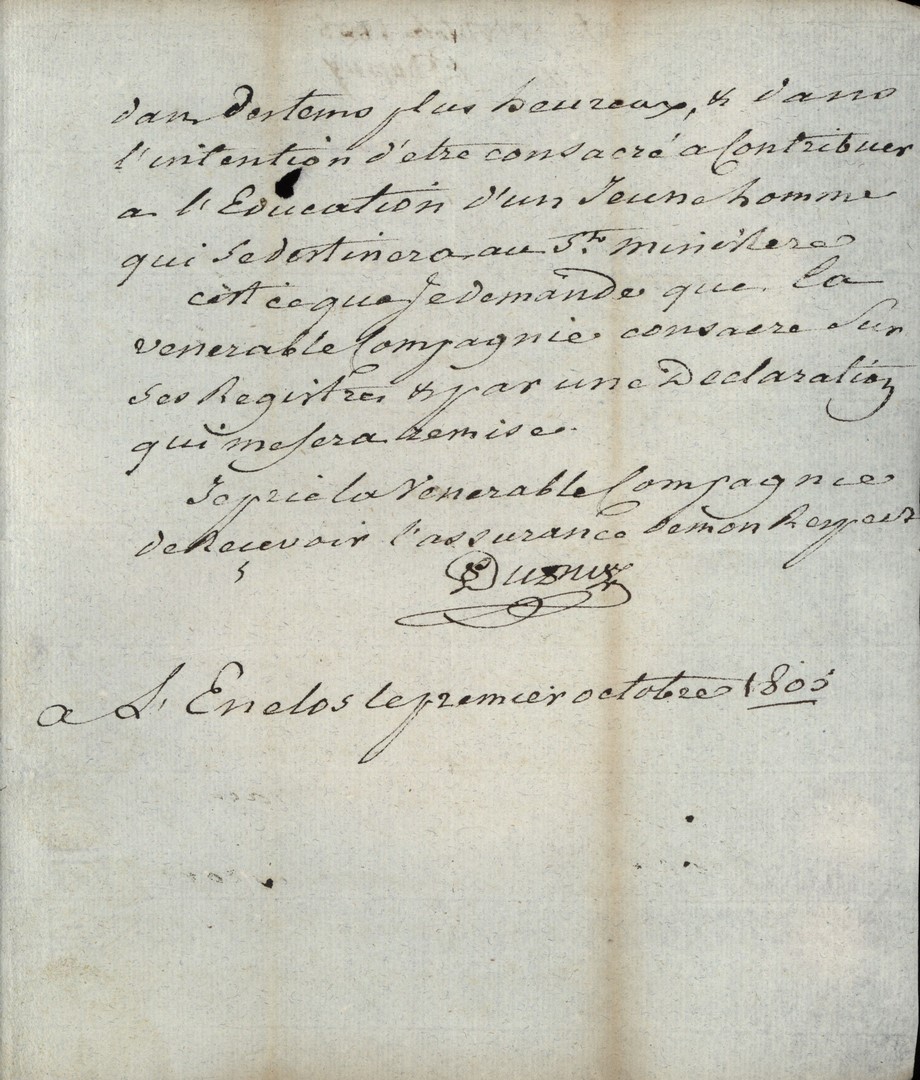 dans des tems plus heureux, & dans
l'intention d'etre consacré a Contribuer
a l'Education d'un Jeune homme
qui se destinera au St. ministere
c'est ce que Je demande que la
venerable Compagnie consacre sur
ses Registres & par une Declaration
qui me sera remise.
Je prie la Venerable Compagnie
de Recevoir l'assurance de mon Respect
Dupuy
a L'Enclos le premier octobre 1805